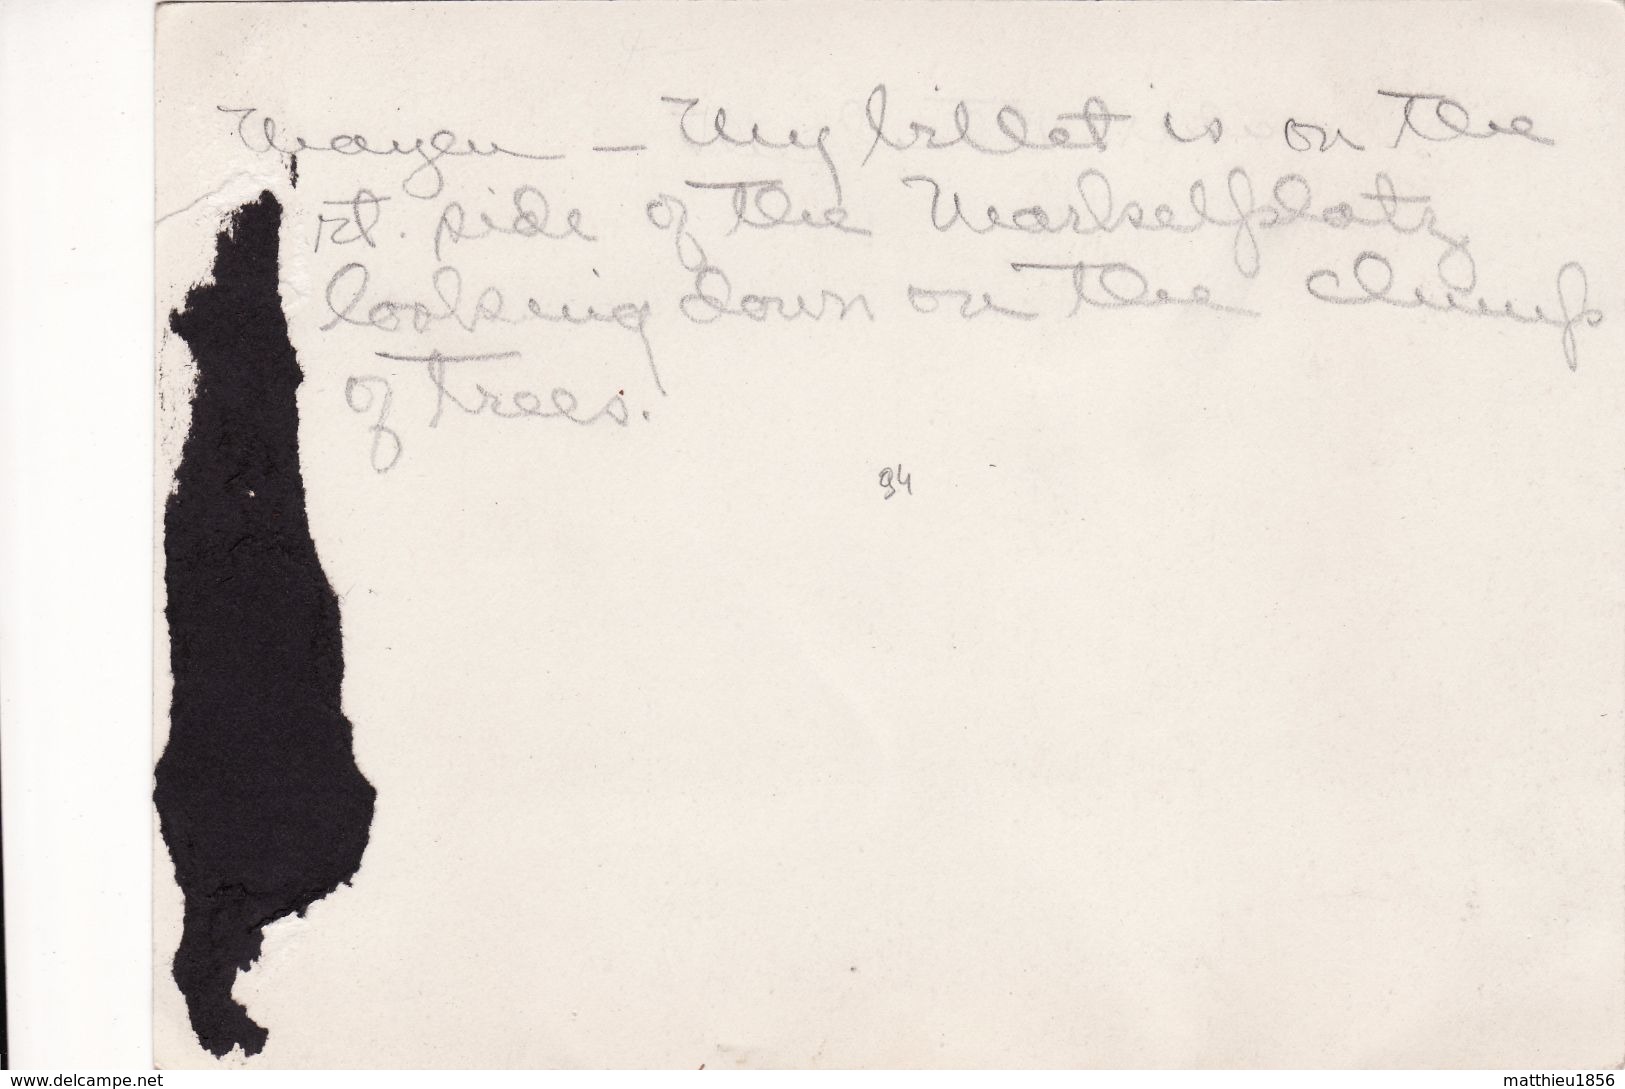 Mayen — My billet is on the
rt. side of the Marketplatz
looking down on the clump
of trees.
94
www.delcampe.net
matthieu1856